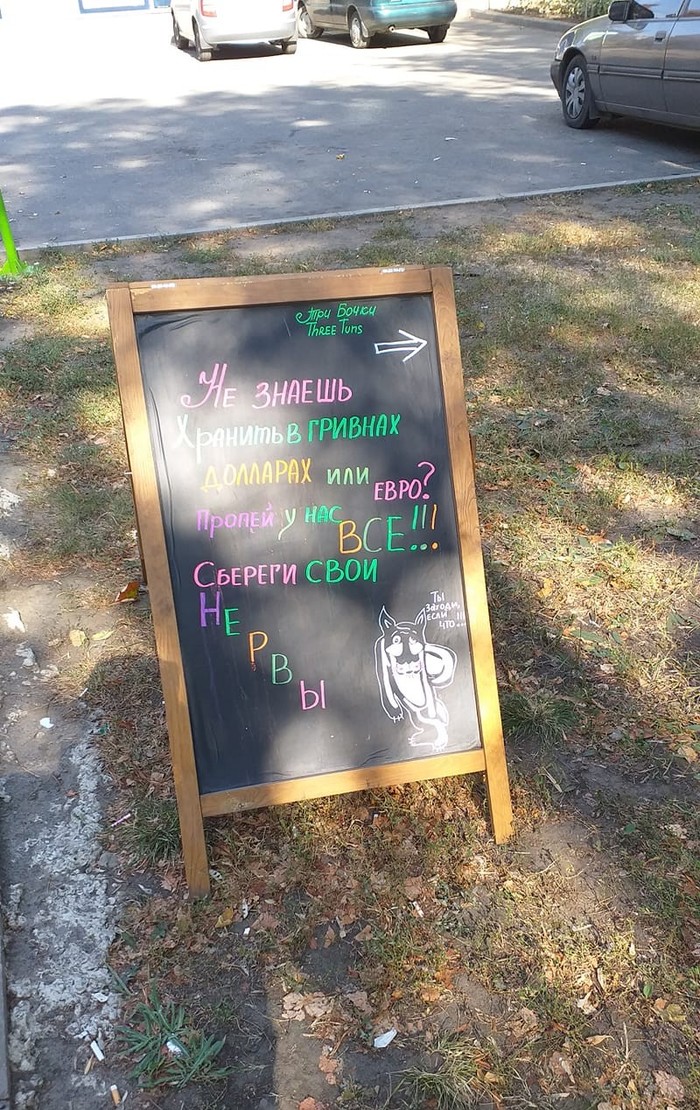 Три Бочки
Three Tuns
Не знаешь
Хранить в гривнах
долларах или
евро?
Пропей у нас
ВСЕ!!!
Сбереги свои
НЕРВЫ
Ты
заходи,
если
что...!!!